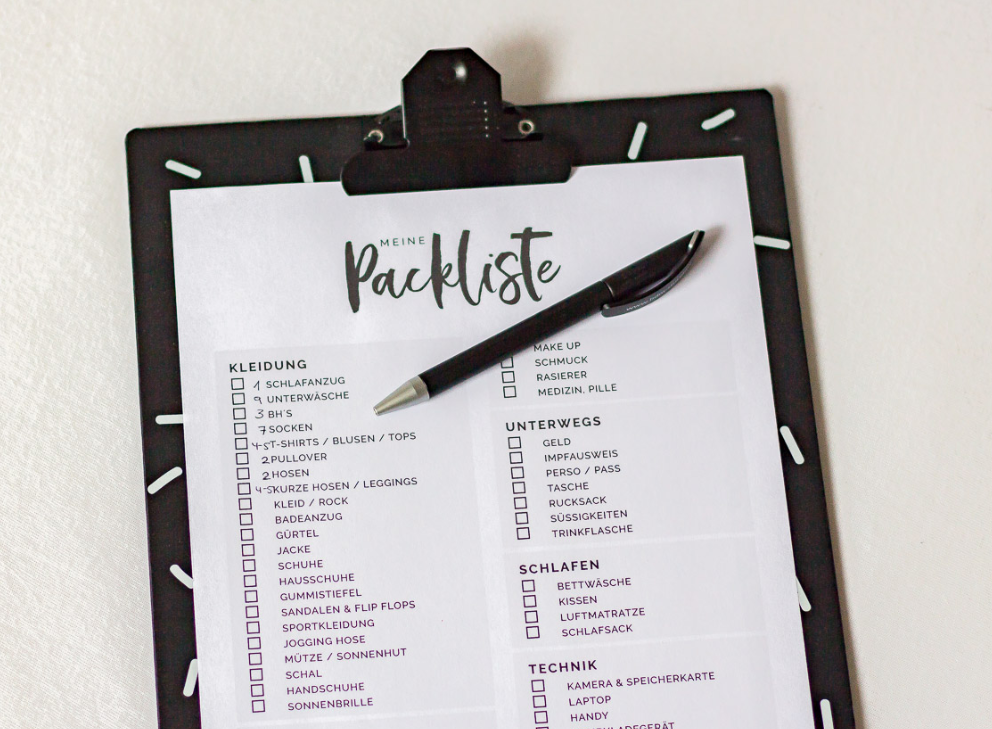 MEINE
Packliste
KLEIDUNG
1 SCHLAFANZUG
9 UNTERWÄSCHE
3 BH'S
7 SOCKEN
4-5 T-SHIRTS / BLUSEN / TOPS
2 PULLOVER
2 HOSEN
4-5 KURZE HOSEN / LEGGINGS
KLEID / ROCK
BADEANZUG
GÜRTEL
JACKE
SCHUHE
HAUSSCHUHE
GUMMISTIEFEL
SANDALEN & FLIP FLOPS
SPORTKLEIDUNG
JOGGING HOSE
MÜTZE / SONNENHUT
SCHAL
HANDSCHUHE
SONNENBRILLE
MAKE UP
SCHMUCK
RASIERER
MEDIZIN, PILLE
UNTERWEGS
GELD
IMPFAUSWEIS
PERSO / PASS
TASCHE
RUCKSACK
SÜSSIGKEITEN
TRINKFLASCHE
SCHLAFEN
BETTWÄSCHE
KISSEN
LUFTMATRATZE
SCHLAFSACK
TECHNIK
KAMERA & SPEICHERKARTE
LAPTOP
HANDY